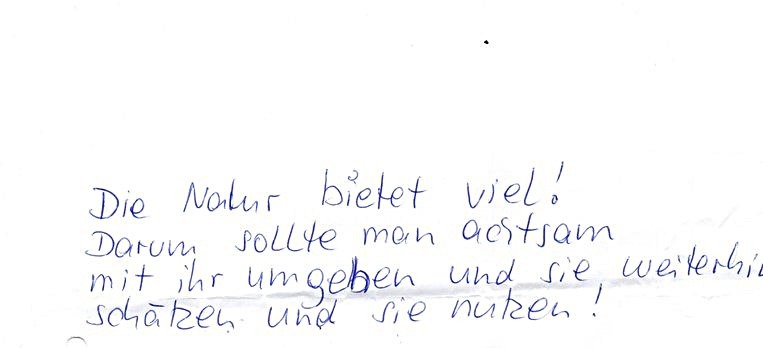 Die Natur bietet viel!
Darum sollte man achtsam
mit ihr umgeben und sie weiterhin
schätzen und sie nutzen!